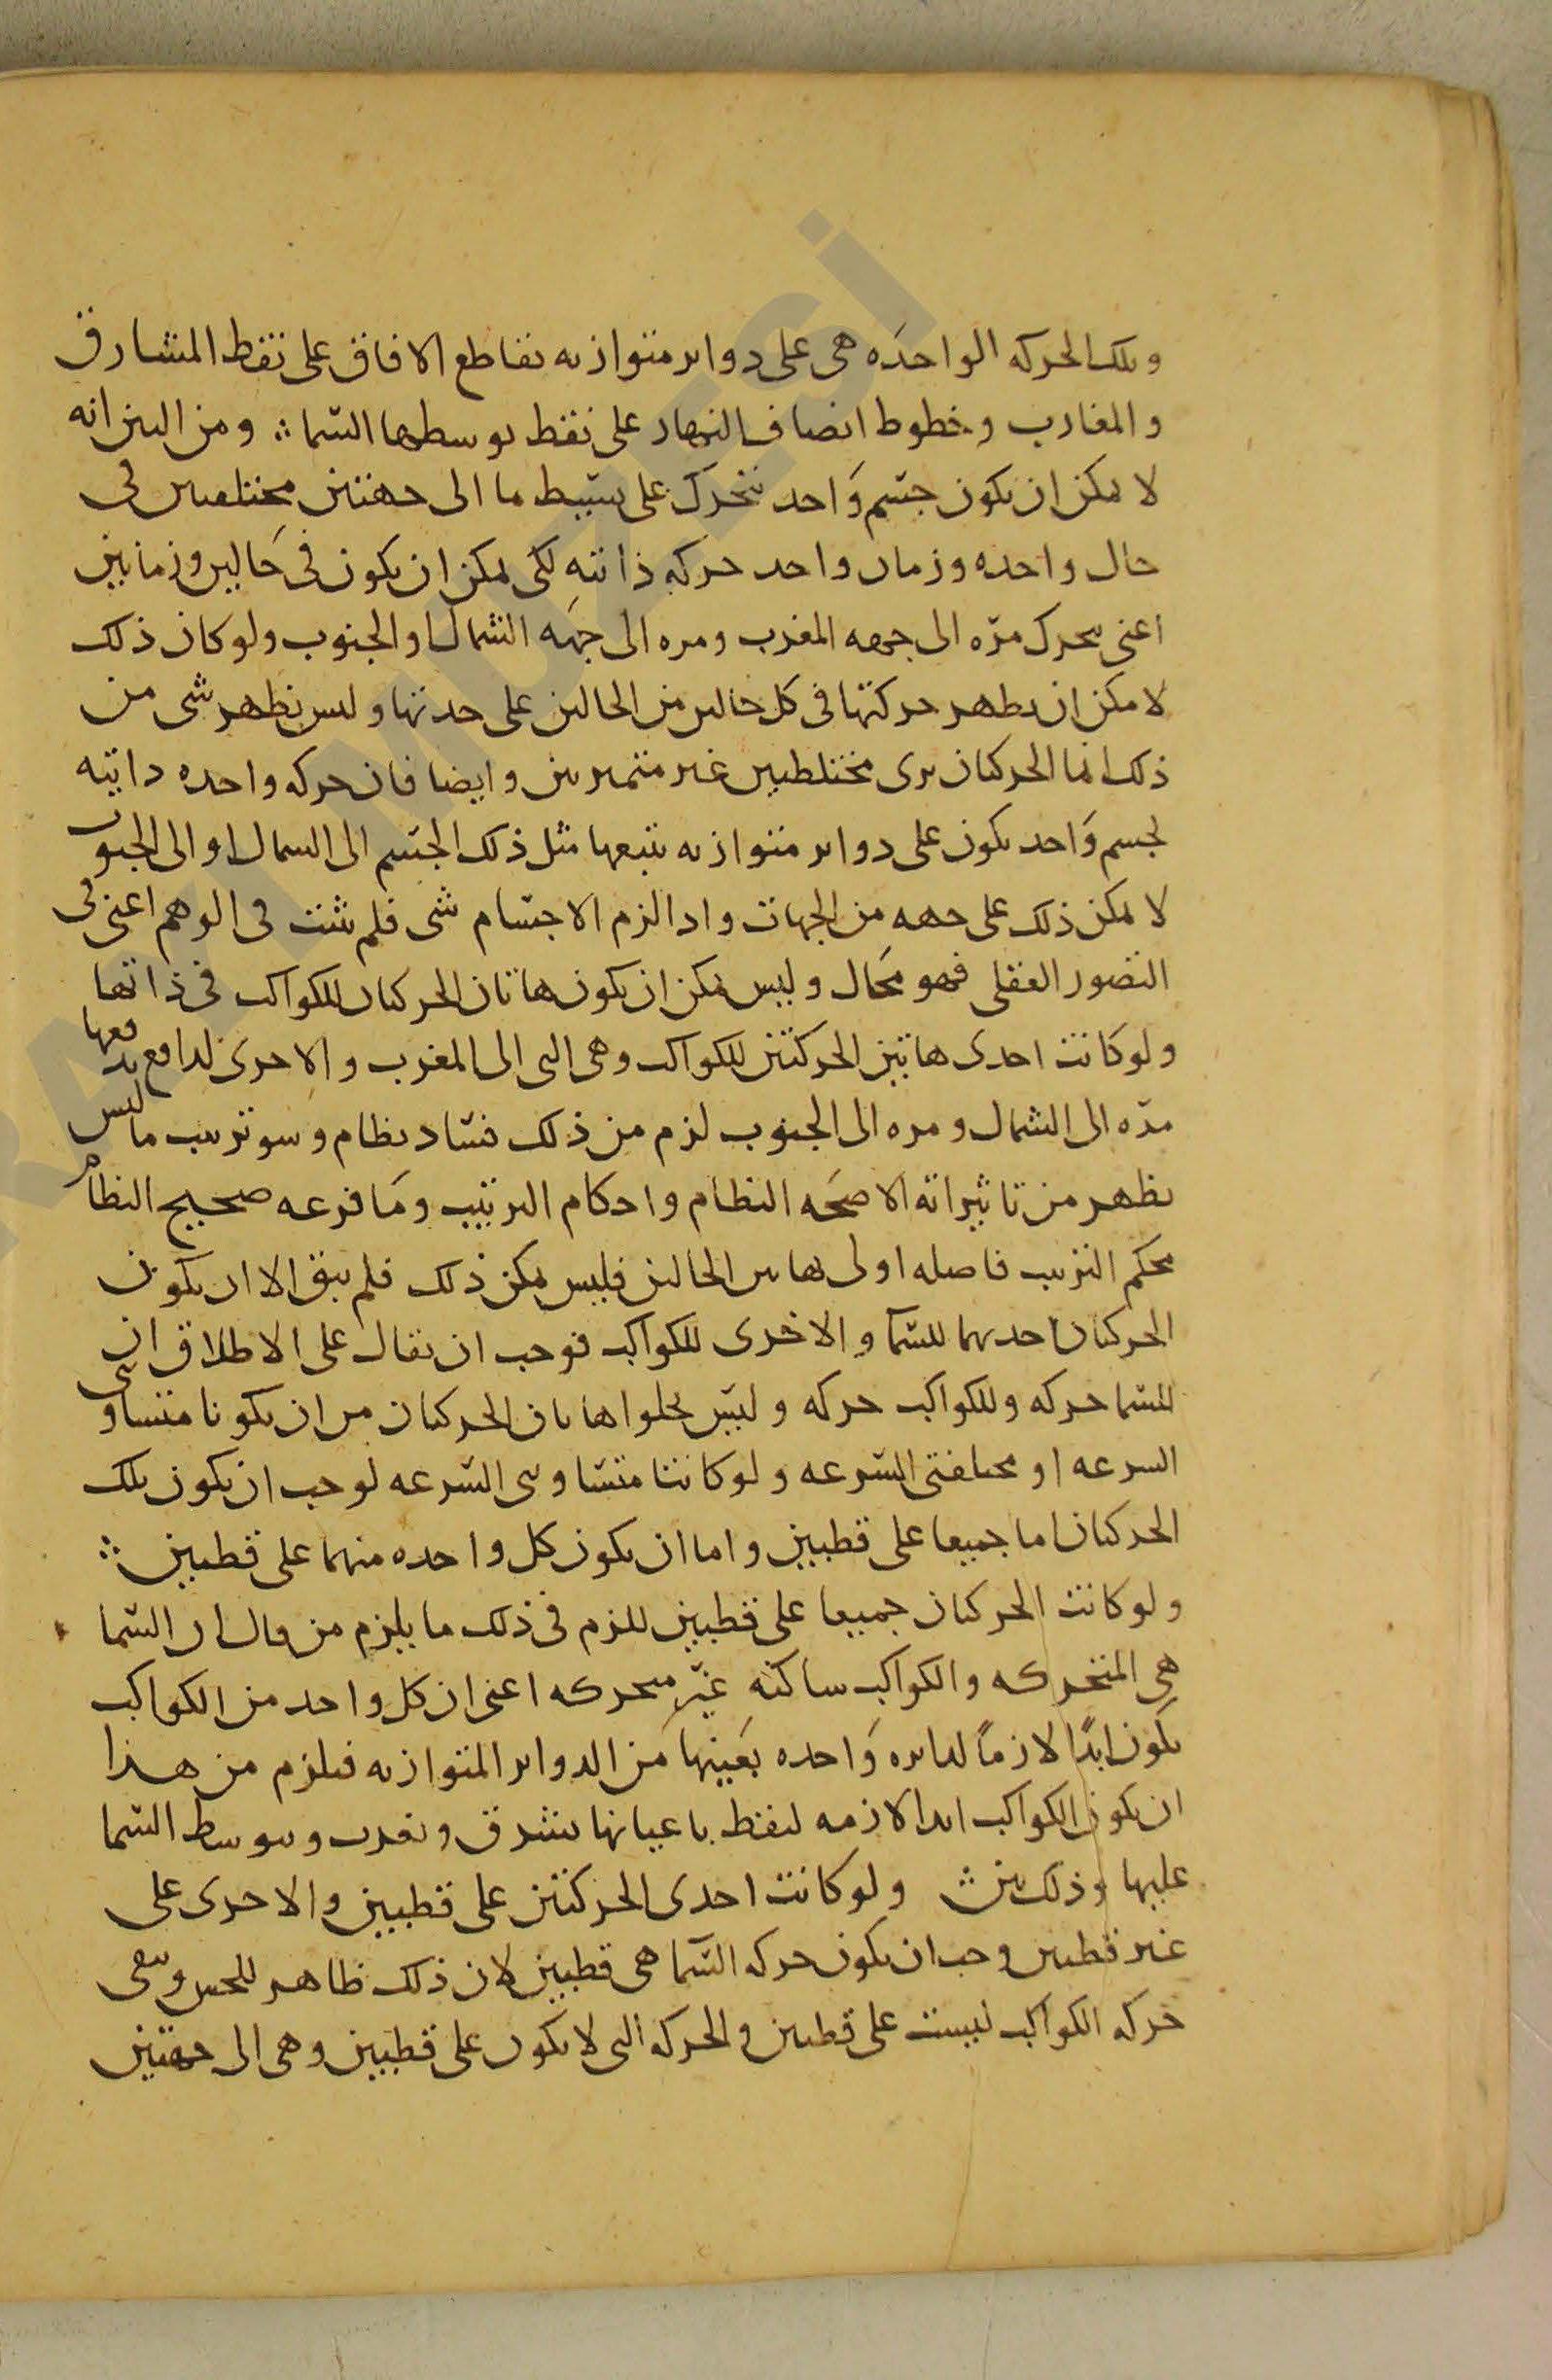 وتلك الحركه الواحده هى على دواير متوازيه تقاطع الافاق على نقط المشارق
والمغارب وخطوط انصاف النهار على نقط توسطها السما ومن البين انه
لا يمكن ان يكون جسم واحد يتحرك على بسيط ما الى جهتين مختلفتين فى
حال واحده وزمان واحد حركه ذاتيه لكى يمكن ان يكون فى حالين وزمانين
اعنى يتحرك مره الى جهه المغرب ومره الى جهه الشمال او الجنوب ولو كان ذلك
لامكن ان يظهر حركتها فى كل حالين من الحالين على حدتها وليس يظهر شى من
ذلك انما الحركتان يرى مختلطتين غير متميزتين وايضا فان حركه واحده ذاتيه
لجسم واحد يكون على دواير متوازيه يتبعها مثل ذلك الجسم الى الشمال او الى الجنوب
لا يمكن ذلك على جهه من الجهات واذا لزم الاجسام شى فلم يثبت فى الوهم اعنى فى
التصور العقلى فهو محال وليس يمكن ان يكون هاتان الحركتان للكواكب فى ذاتها
ولو كانت احدى هاتين الحركتين للكواكب وهى التى الى المغرب والاخرى لدافع يدفعها
مره الى الشمال ومره الى الجنوب لزم من ذلك فساد نظام وسو ترتيب ما ليس
يظهر من تاثيراته الا صحه النظام واحكام الترتيب وما فرعه صحيح النظام
محكم الترتيب فاصله اولى بهاتين الحالين فليس يمكن ذلك فلم يبق الا ان يكون
الحركتان احديهما للسما والاخرى للكواكب فوجب ان يقال على الاطلاق ان
للسما حركه وللكواكب حركه وليس يخلوا هاتان الحركتان من ان يكونا متساوتى
السرعه او مختلفتى السرعه ولو كانتا متساوتى السرعه لوجب ان يكون تلك
الحركتان اما جميعا على قطبين واما ان يكون كل واحده منهما على قطبين
ولو كانت الحركتان جميعا على قطبين للزم فى ذلك ما يلزم من قال ان السما
هى المتحركه والكواكب ساكنه غير متحركه اعنى ان كل واحد من الكواكب
يكون ابدًا لازمًا لدايره واحده بعينها من الدواير المتوازيه فيلزم من هذا
ان يكون الكواكب ابدا لازمه لنقط باعيانها تشرق وتغرب وتتوسط السما
عليها وذلك بين ولو كانت احدى الحركتين على قطبين والاخرى على
غير قطبين وجب ان يكون حركه السما هى قطبين لان ذلك ظاهر للحس وبقى
حركه الكواكب ليست على قطبين والحركه التى لا يكون على قطبين وهى الى جهتين